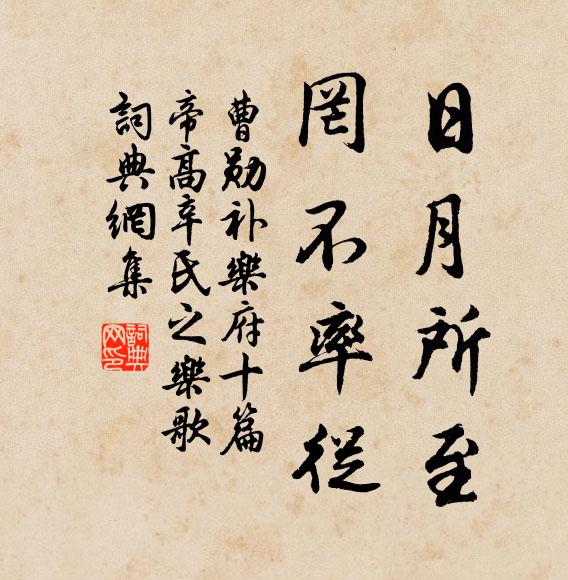 日月所至
罔不率從
曹勋补樂府十篇
帝高辛氏之樂歌
詞典網集
詞典
网印